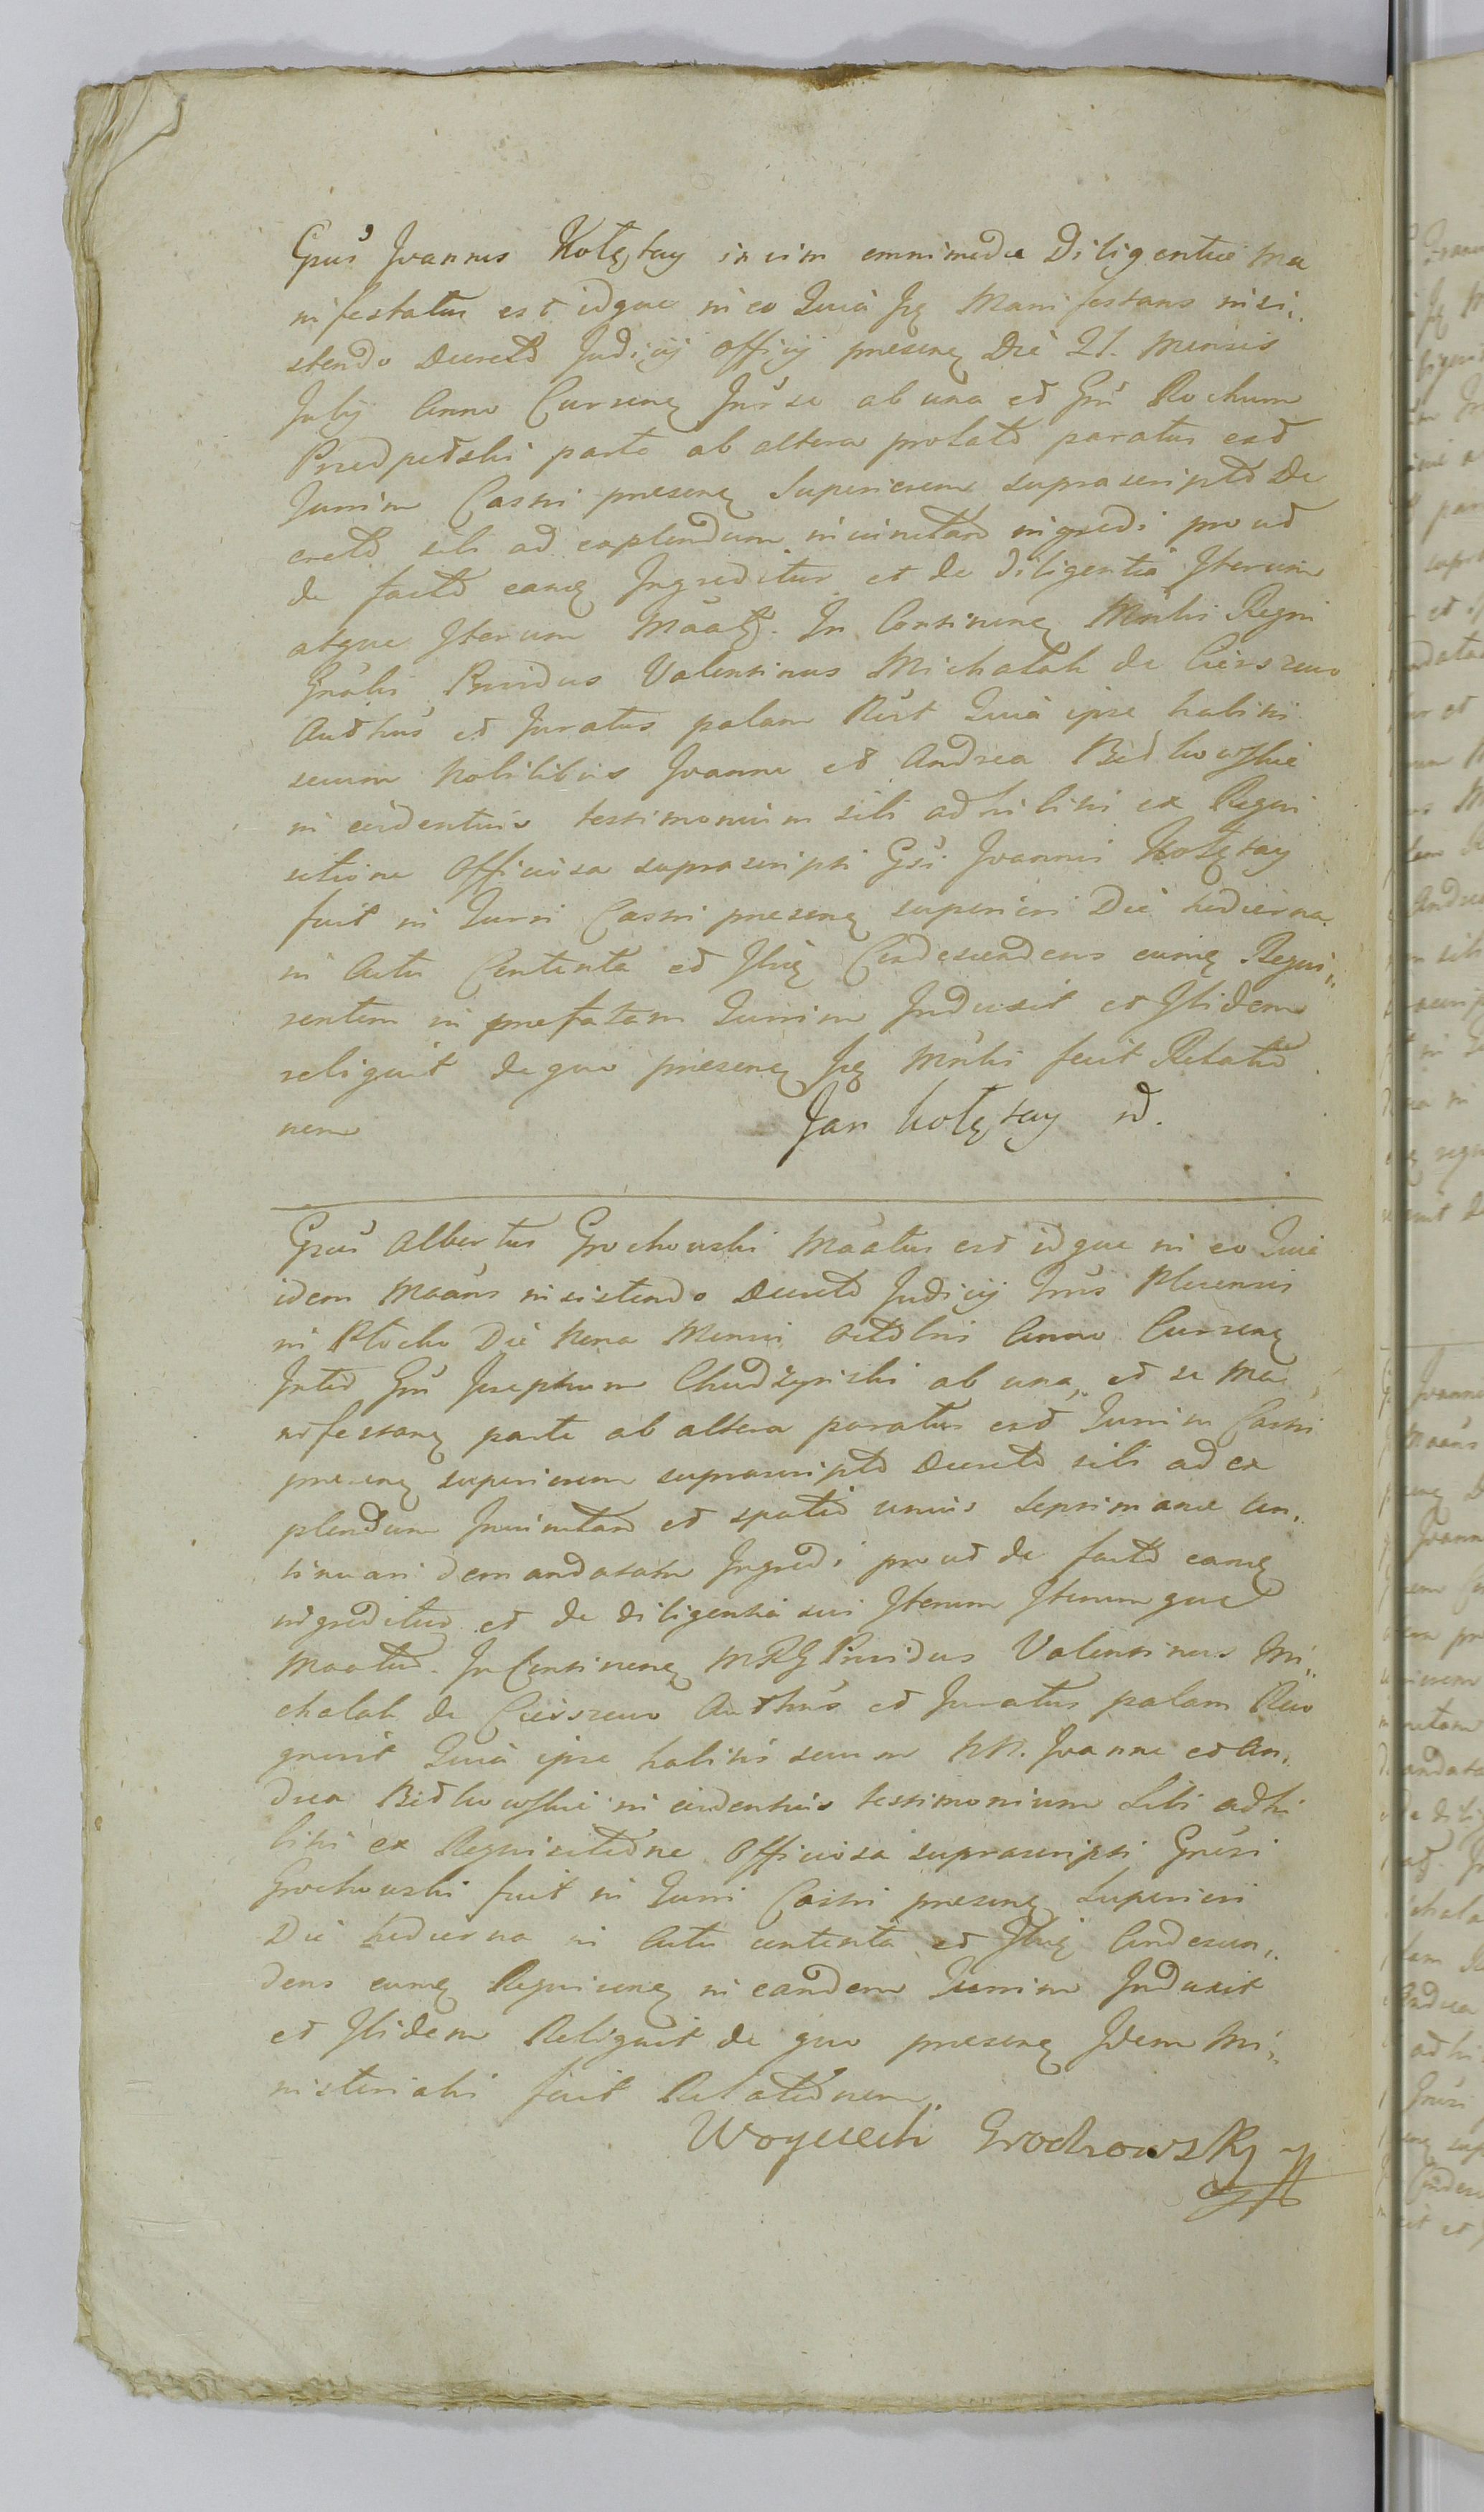 Gsus Joannes Kołłątay in vim omnimodæ Diligentiæ Ma
nifestatus est idque in eo Quia Jp̄e Manifestans insi„
stendo Decreto Judicij Officij presen̄ Die 21. Mensis
Julij Anno Curren̄ Inťr se ab una et Gsū Rochum
Przedpełski parte ab altera prolato paratus est
Turrim Castri presen̄ Superiorem suprascripto De
creto sibi ad explendum iniunctam ingredi prout
de facto eam̄ Ingreditur et de diligentia Iterum
atque Iterum Māat̄. In Continen̄ Mnlis Regni
Gnālis Providus Valentinus Michalak de Cierszewo
Autħus et Juratus palam Rěct Quia ipse habitis
secum Nobilibus Joanne et Andrea Bedkowskie
in evidentius testimonium sibi adhibitis ex Requi
sitione Officiosa suprascripti Gsi Joannis Kołłątay
fuit in Turri Castri presen̄ superiori Die hodierna
in Actu Contenta et Ibiq̄ Condescendens eum̄ Requi„
rentem in prefatam Turrim Induxit et Ibidem
reliquit de quo presen̄ Jp̄e Mnlis fecit Relatio
nem
Jan kołłątay
Gsus Albertus Grochowski Māatus est idque in eo Quia
idem Māans insistendo Decreto Judicij Tr̄is Plocensis
in Płocko Die Nona Mensis Octobris Anno Curren̄
Inter Gsū Josephum Chudzyński ab una, et se Ma
nifestan̄ parte ab altera paratus est Turrim Castri
presen̄ superiorem suprascripto Decreto sibi ad ex
plendum Iniunctam et spatio unius Septimanæ Con„
tinuari demandatam Ingredi prout de facto eam̄
ingreditur et de diligentia sui Iterum Iterumque
Maatur. In Continen̄ MRG Providus Valentinus Mi„
chalak de Cierszewo Autħus et Juratus palam Reco
gnovit Quia ipse habitis secum NN. Joanne et An„
drea Bedkowskie in evidentius testimonium Sibi adhi
bitis ex Requisitione Officiosa suprascripti Gnŕsi
Grochowski fuit in Turri Castri presen̄ Superiori
Die hodierna in Actu contenta et Ibiq̄ Condescen„
dens eum̄ Requiren̄ in eandem Turrim Induxit
et Ibidem Reliquit de quo presen̄ Idem Mi„
nisterialis fecit Relationem.
Woyciech Grochowsky